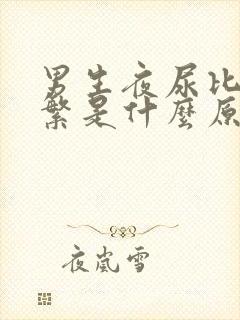 男生夜尿比
繁是什麼原
夜嵐雪